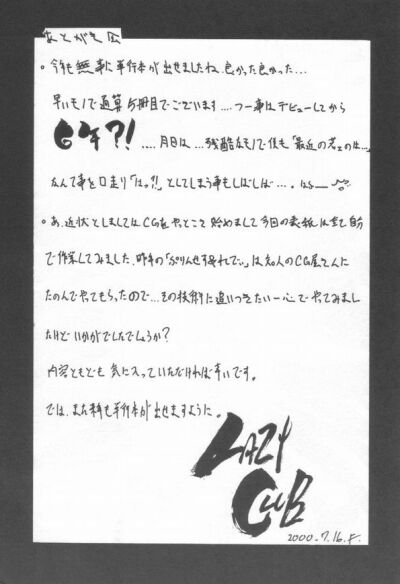 あとがき
。今年も無事に単行本が出せましたね、良かった良かった…
早いもので通算5冊目でございます…. つー事はデビューしてから
6年?! …. 月日は…残酷なもので僕も「最近の若ェのは…」
なんて事を口走り「はっ?!」としてしまう事もしばしば…。
。あ、近状としましてはCGをやっとこ始めまして今回の表紙は全て自分
で作業してみました、昨年の「ぷりんせすみれでぃ」は知人のCG屋さんに
たのんでやってもらったので…その技術に追いつきたい一心でやってみまし
たけど いかがでしたでしょうか?
内容ともども 気に入っていただければ幸いです。
では、また来年も単行本が出せますように。
LAZY
CLUB
2000.7.16.